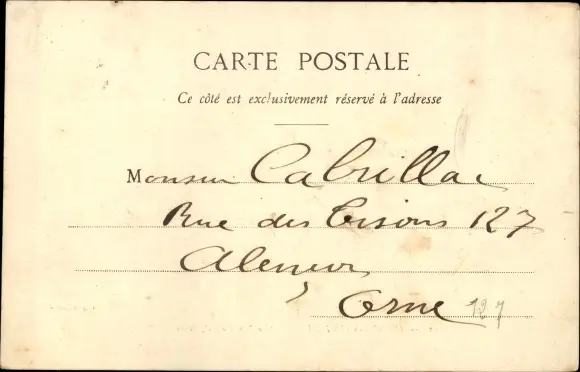 CARTE POSTALE
Ce côté est exclusivement réservé à l'adresse
Monsieur Cabrillac
Rue des Tisons 127
Alençon
Orne 127